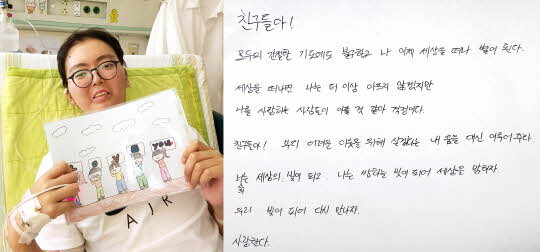 YOU
AIR
친구들아!
모두의 간절한 기도에도 불구하고 나 이제 세상을 떠나 별이 된다.
세상을 떠나면 나는 더 이상 아프지 않겠지만
나를 사랑하는 사람들이 아플 것 같아 걱정이다.
친구들아! 우리 어려운 이웃을 위해 살겠다는 내 꿈을 대신 이루어주라.
너희는 세상의 빛이 되고 나는 밤하늘 빛이 되어 세상을 밝히자
우리 빛이 되어 다시 만나자.
사랑한다.